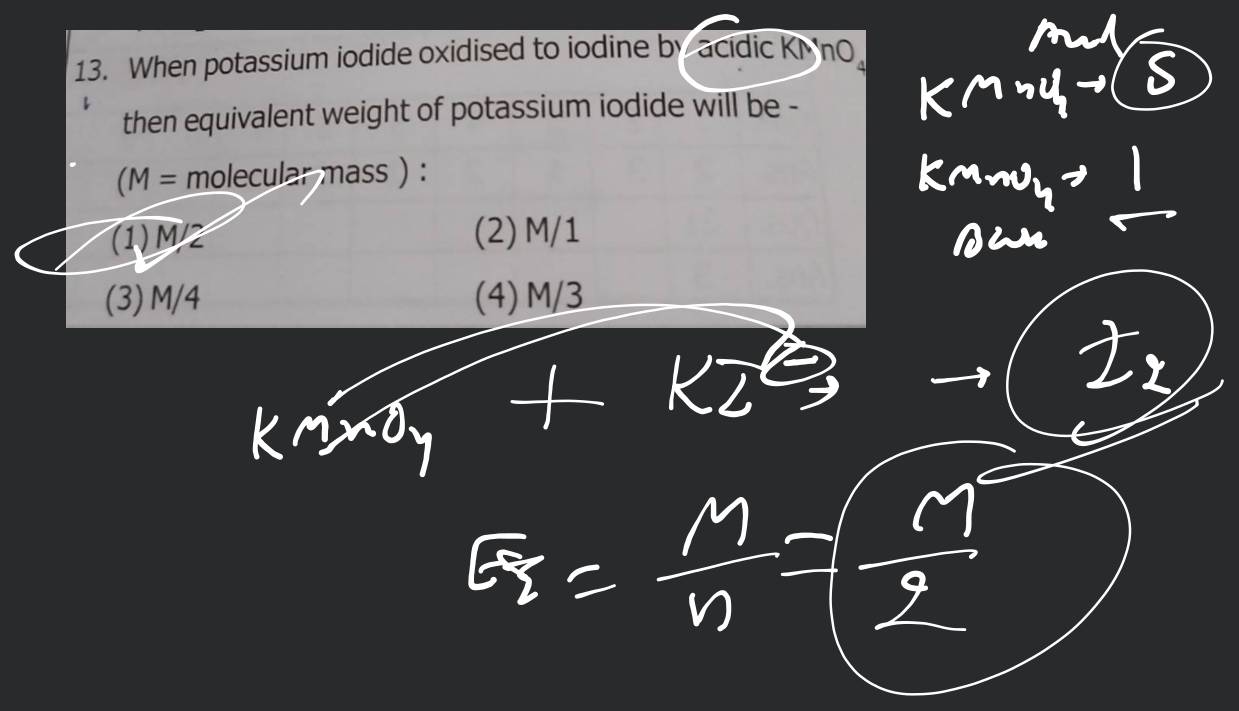 13. When potassium iodide oxidised to iodine by acidic KMnO₄
then equivalent weight of potassium iodide will be -
(M = molecular mass ) :
(1) M/2 (2) M/1
(3) M/4 (4) M/3
KMnO₄ → 5
KMnO₄ → 1
KMnO₄ + KI → I₂
Eq = M/n = M/2